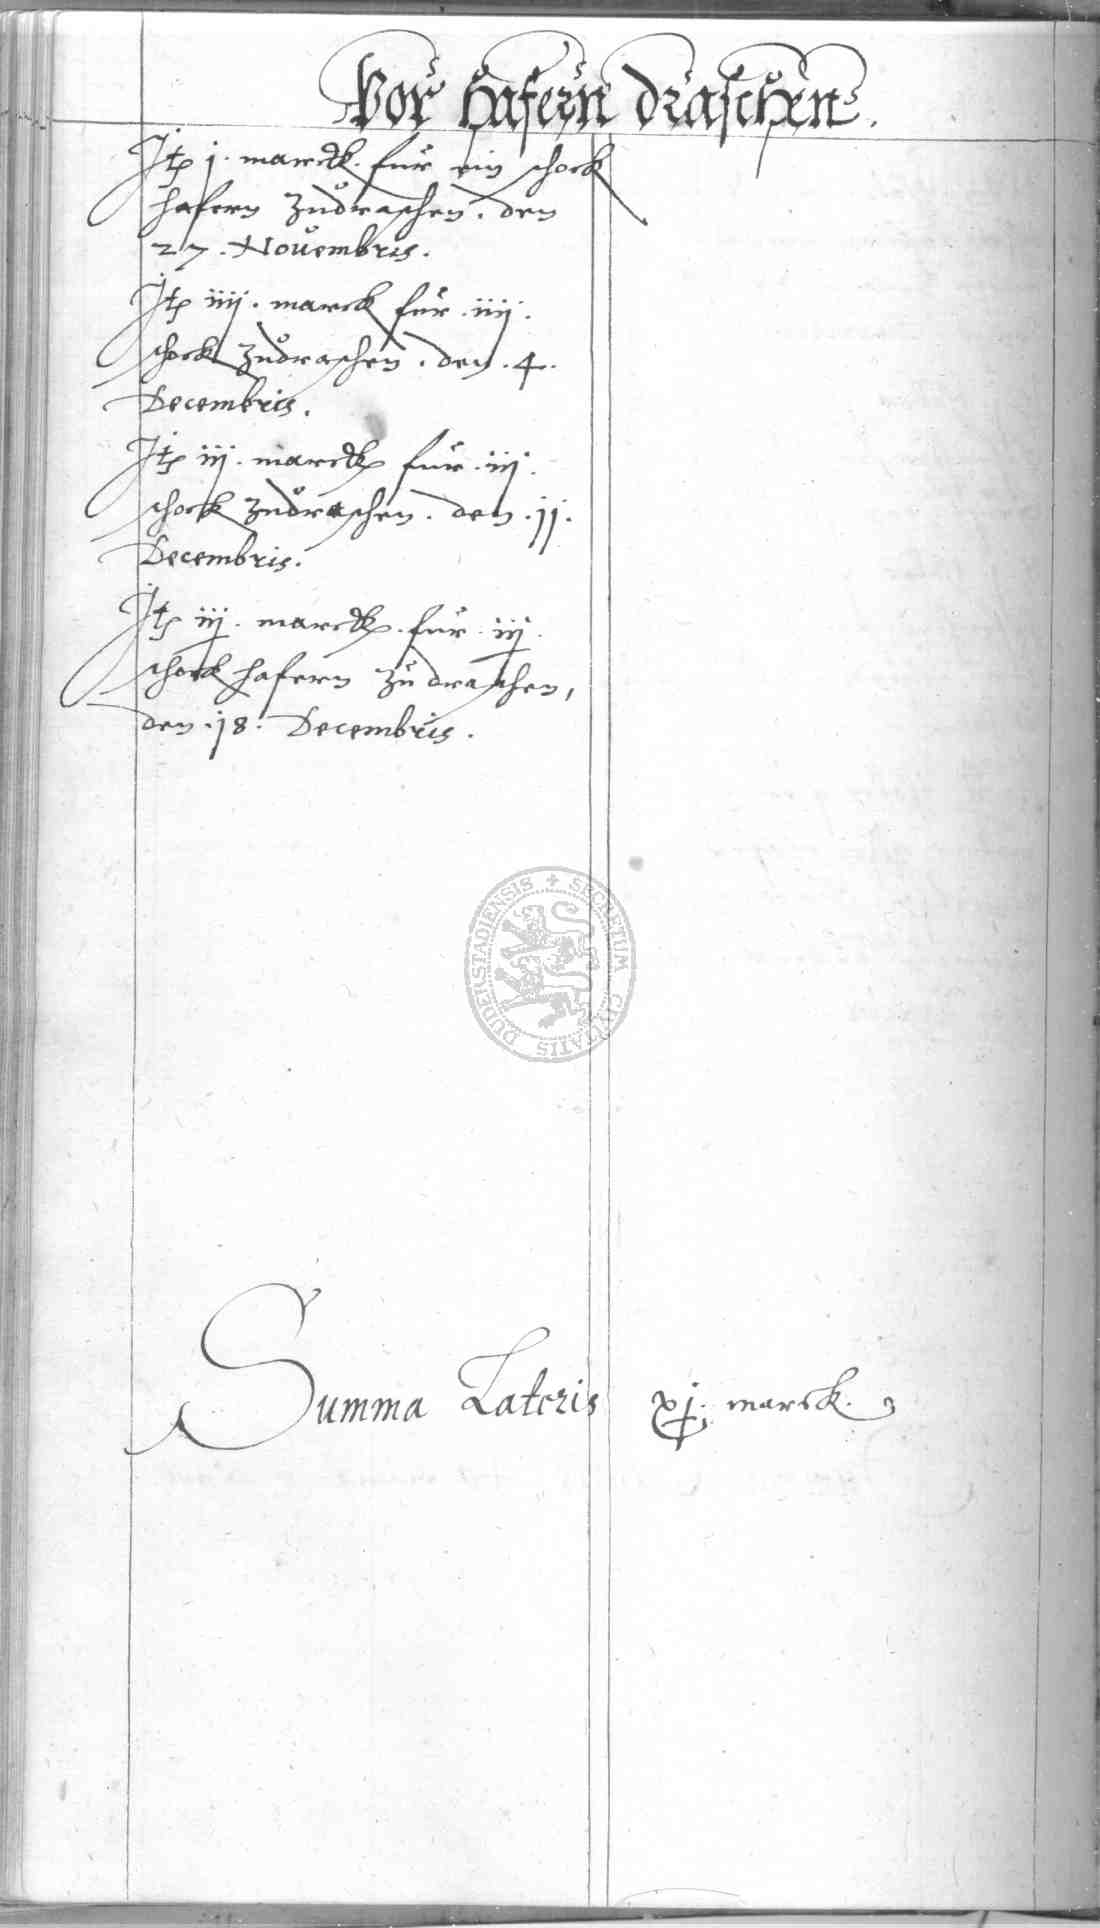 Vor hafern draschen.
Itp j. marck. für ein schock
hafern zůdraschen. den
27. Nouembris.
Itp iiij. marck für .iiij.
schock zůdraschen. den .4.
Decembris.
Itp iij. marck für .iij.
schock zůdraschen. den .11.
Decembris.
Itp iij. marck. für .iij.
schock hafern zů draschen,
den .18. Decembris.
SECRETUM CIVITATIS DUDERSTADIENSIS
Summa Lateris xj. marck.